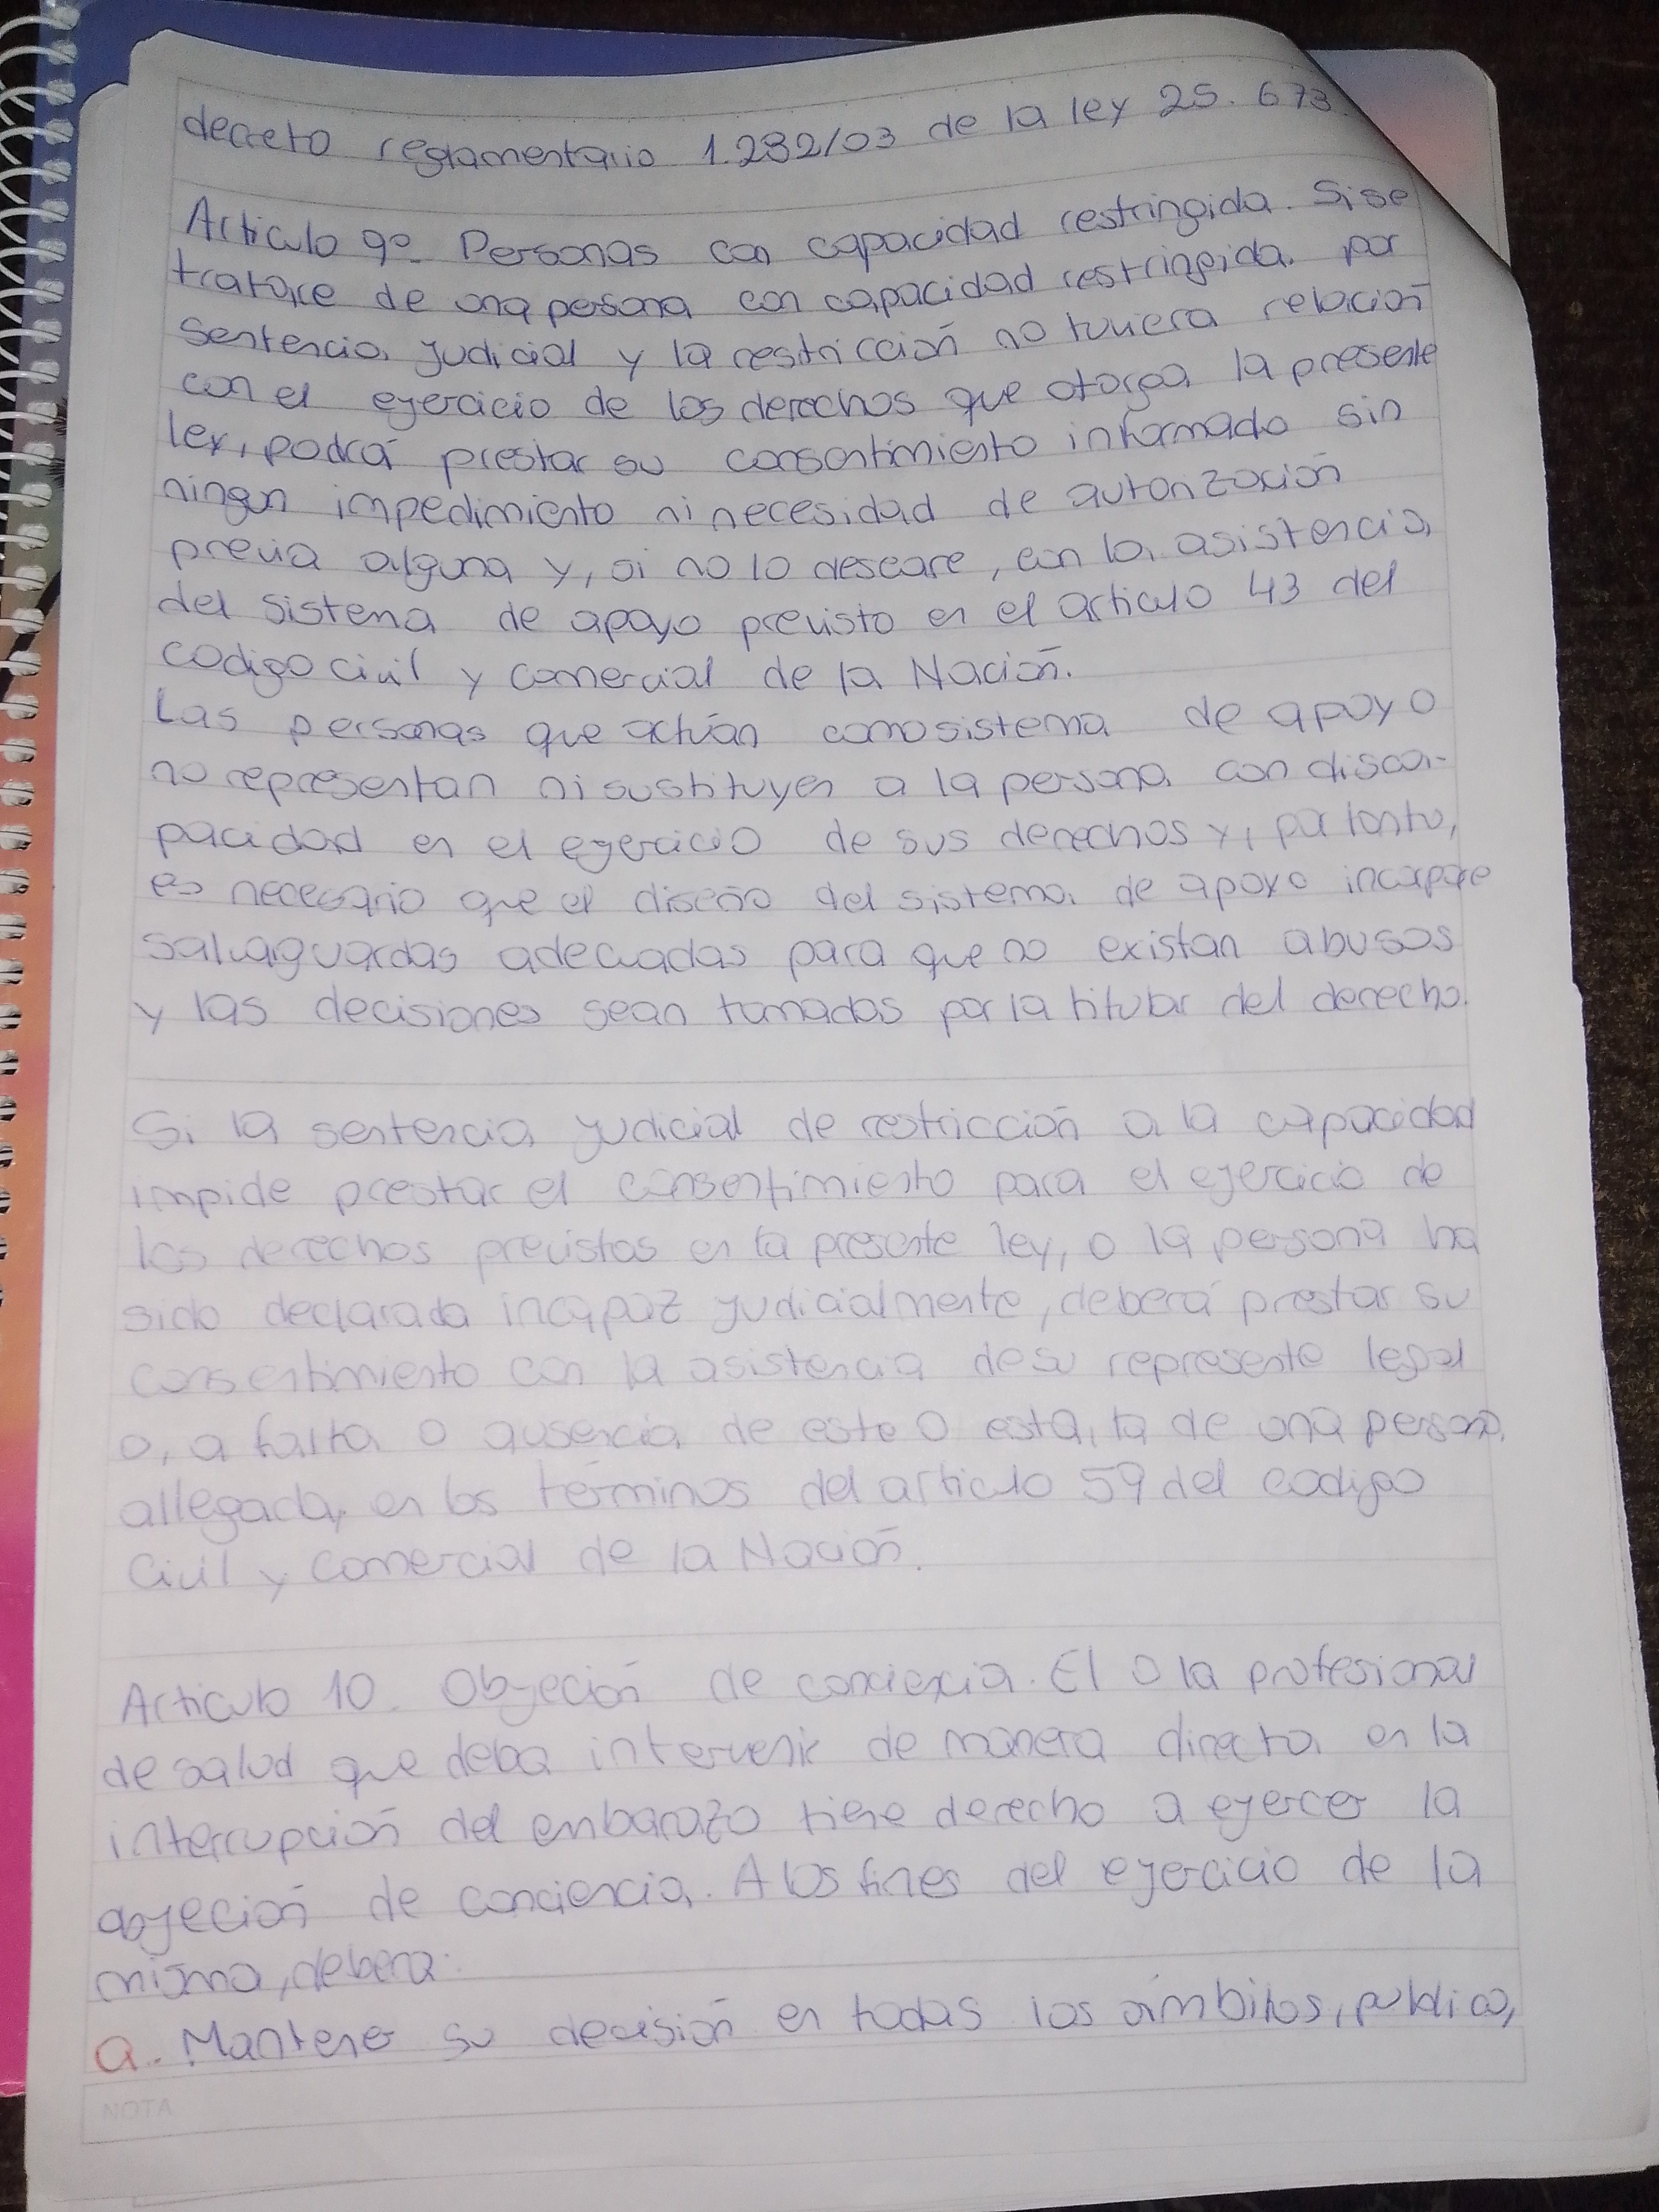 decreto reglamentario 1.282/03 de la ley 25.673.
Articulo 9º. Personas con capacidad restringida. Si se
tratare de una persona con capacidad restringida por
sentencia judicial y la restricción no tuviera relación
con el ejercicio de los derechos que otorga la presente
ley, podrá prestar su consentimiento informado sin
ningun impedimiento ni necesidad de autorización
previa alguna y, si no lo deseare, con la asistencia
del sistema de apoyo previsto en el articulo 43 del
codigo civil y comercial de la Nación.
Las personas que actúan como sistema de apoyo
no representan ni sustituyen a la persona con disca-
pacidad en el ejercicio de sus derechos y, por tanto,
es necesario que el diseño del sistema de apoyo incorpore
salvaguardas adecuadas para que no existan abusos
y las decisiones sean tomadas por la titular del derecho.
Si la sentencia judicial de restricción a la capacidad
impide prestar el consentimiento para el ejercicio de
los derechos previstos en la presente ley, o la persona ha
sido declarada incapaz judicialmente, deberá prestar su
consentimiento con la asistencia de su represente legal
o, a falta o ausencia de este o esta, la de una persona
allegada, en los términos del articulo 59 del codigo
Civil y Comercial de la Nación.
Articulo 10. Objeción de conciencia. El o la profesional
de salud que deba intervenir de manera directa en la
interrupción del embarazo tiene derecho a ejercer la
objeción de conciencia. A los fines del ejercicio de la
misma, debera:
a. Mantener su decisión en todos los ámbitos, publico,
NOTA